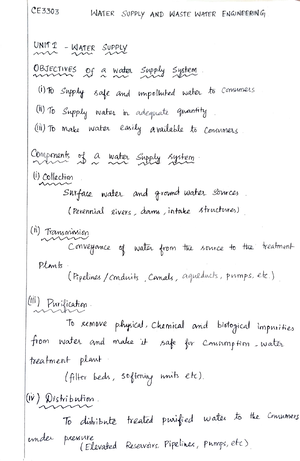 CE3303 WATER SUPPLY AND WASTE WATER ENGINEERING
UNIT I - WATER SUPPLY
OBJECTIVES of a water Supply System
(i) To Supply safe and unpolluted water to Consumers
(ii) To Supply water in adequate quantity.
(iii) To make water easily available to Consumers
Components of a water supply system.
(i) Collection
Surface water and ground water sources.
(Perennial rivers, dams, intake structures).
(ii) Transmission
Conveyance of water from the source to the treatment
plants.
(Pipelines / Conduits, Canals, aqueducts, pumps, etc.)
(iii) Purification.
To remove physical, Chemical and biological impurities
from water and make it safe for Consumption. Water
treatment plant.
(filter beds, softening units etc).
(iv) Distribution.
To distribute treated purified water to the Consumers
under pressure
(Elevated Reservoirs Pipelines, Pumps, etc).